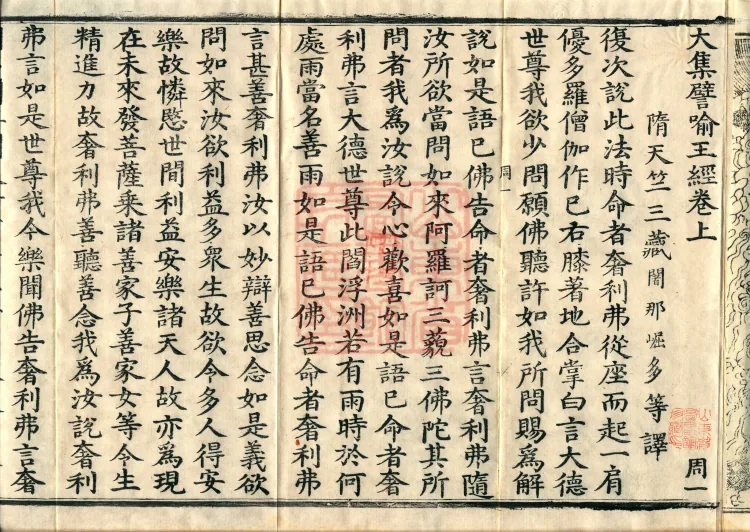 大集譬喻王經卷上
周一
隋天竺三藏闍那崛多等譯
復次說此法時命者奢利弗從座而起一肩
優多羅僧伽作已右膝著地合掌白言大德
世尊我欲少問願佛聽許如我所問賜為解
說如是語已佛告命者奢利弗言奢利弗隨
周一
汝所欲當問如來阿羅訶三藐三佛陀其所
問者我為汝說令心歡喜如是語已命者奢
利弗言大德世尊此閻浮洲若有雨時於何
處雨當名善雨如是語已佛告命者奢利弗
言甚善奢利弗汝以妙辯善思念如是義欲
問如來汝欲利益多眾生故欲令多人得安
樂故憐愍世間利益安樂諸天人故亦為現
在未來發菩薩乘諸善家子善家女等令生
精進力故奢利弗善聽善念我為汝說奢利
弗言如是世尊我今樂聞佛告奢利弗言奢